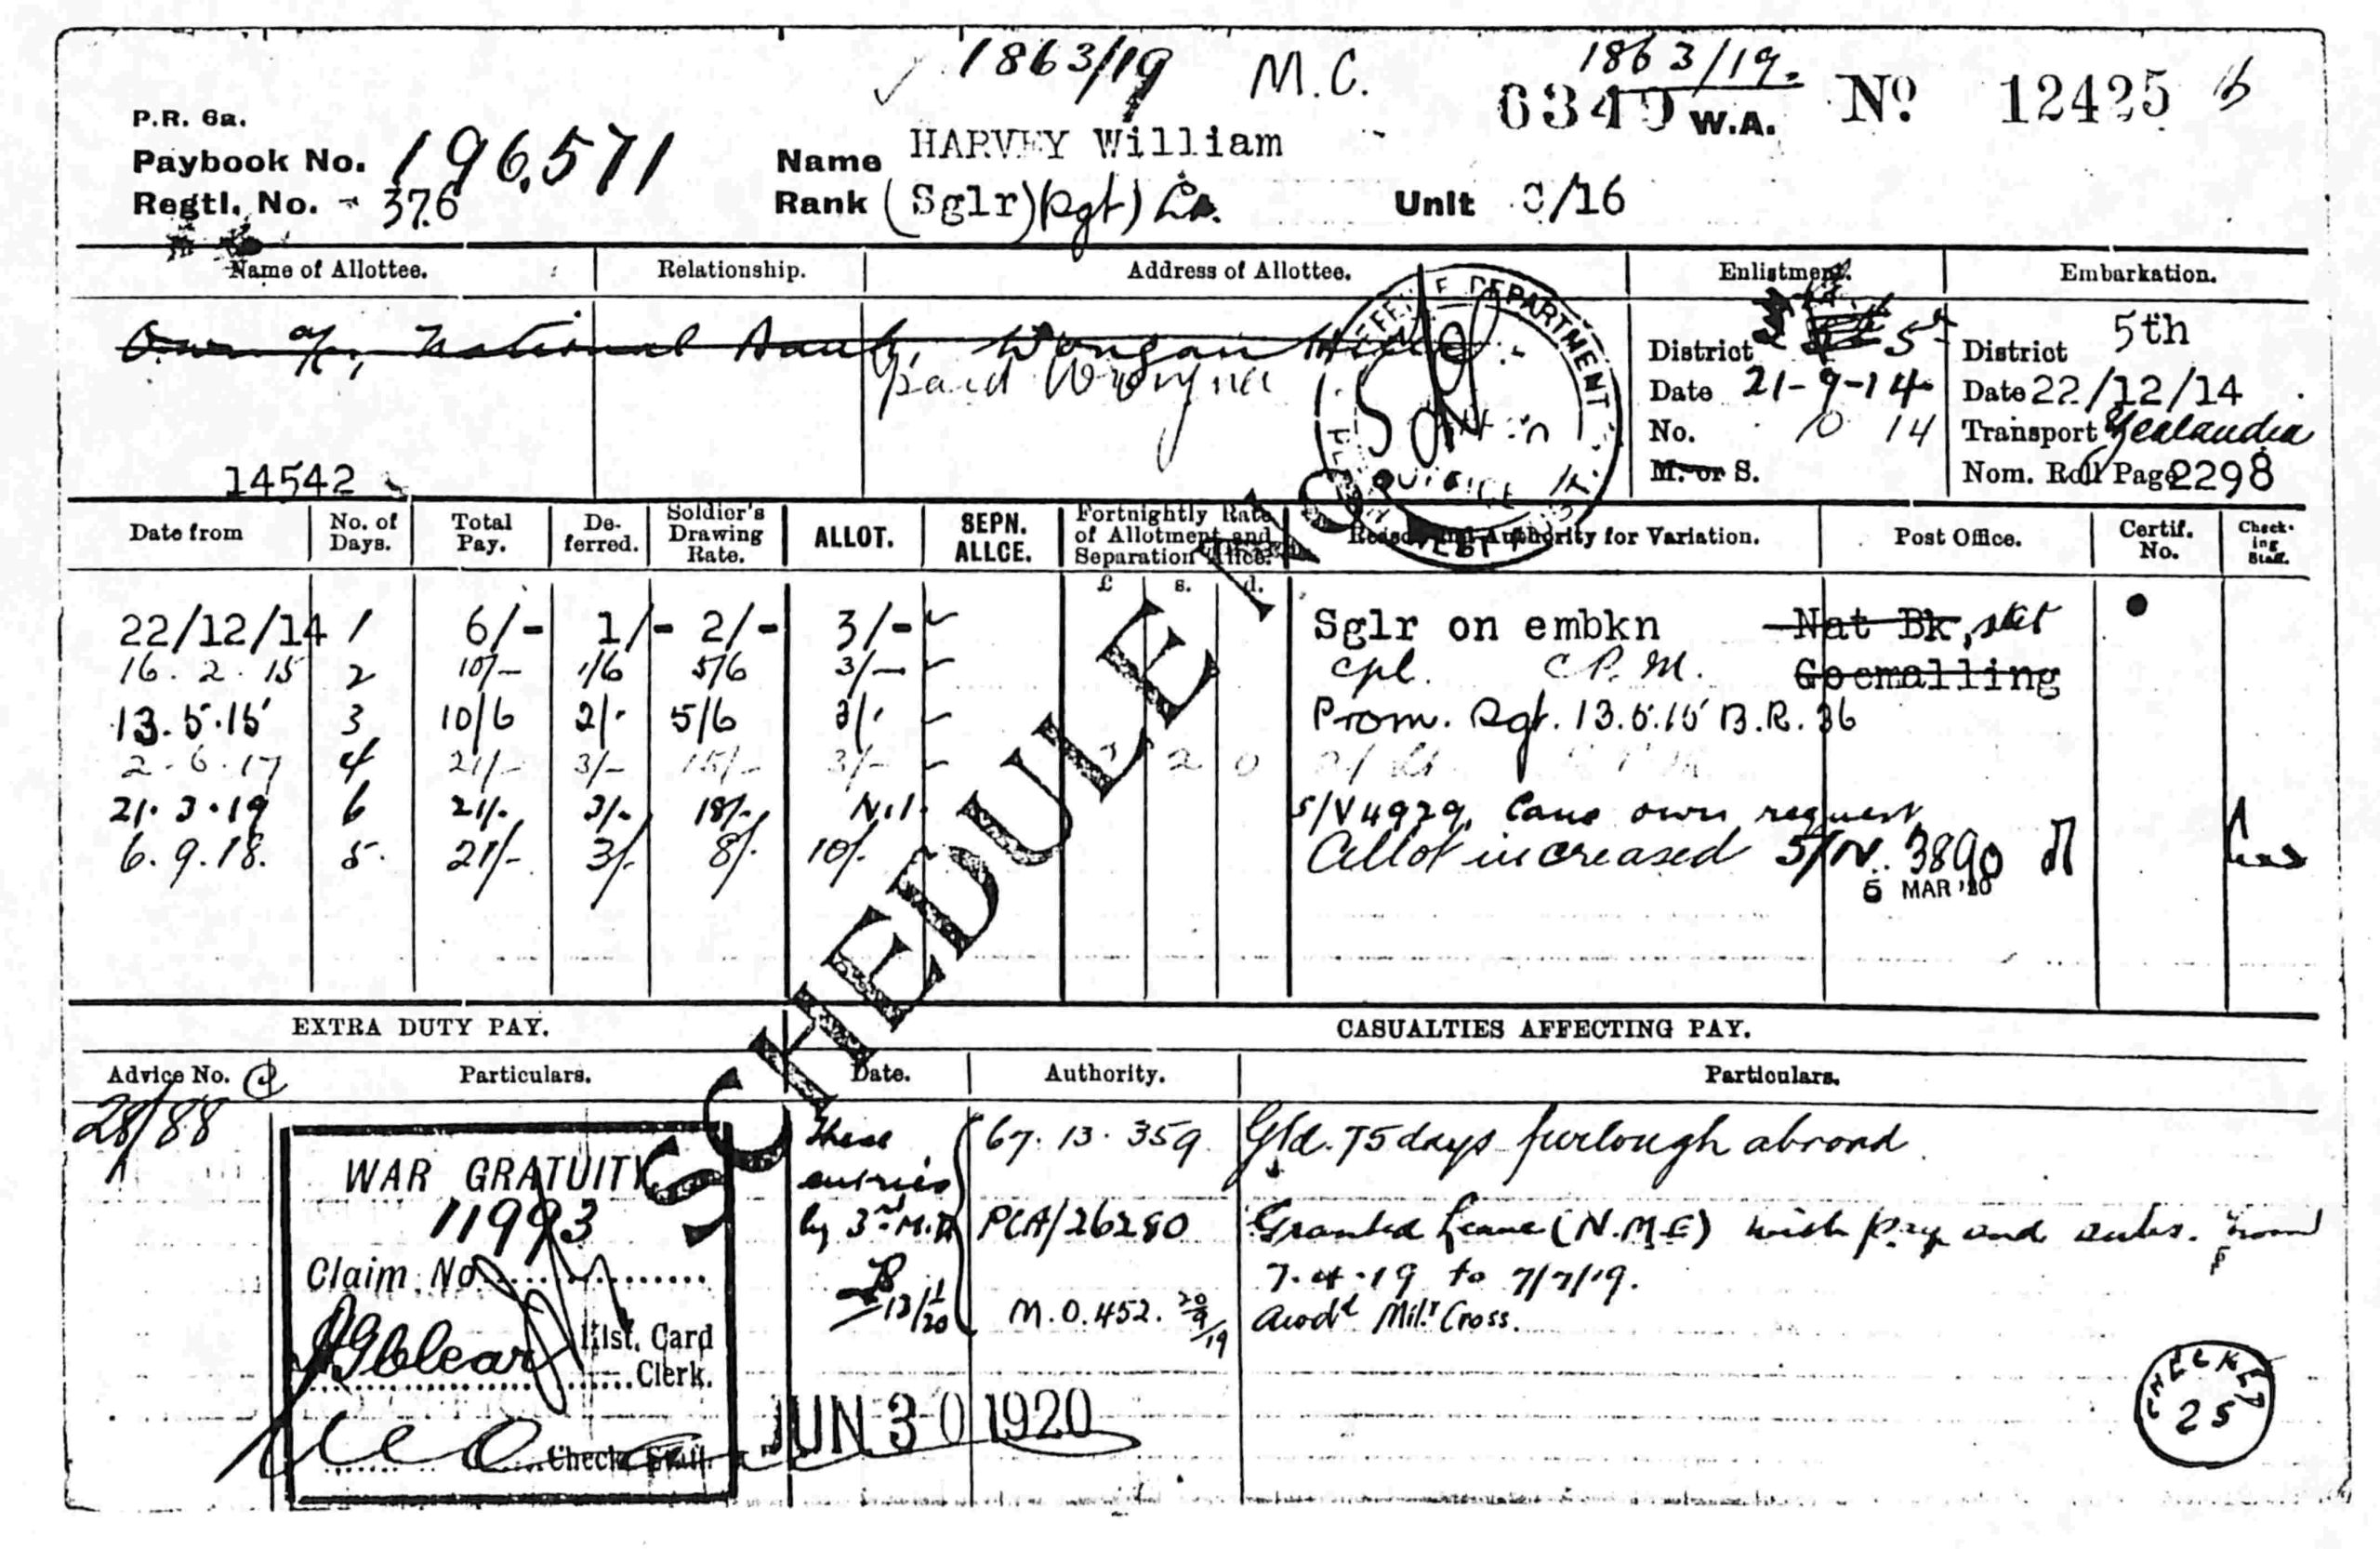 1863/19 M.C. 1863/19.
P.R. 6a. 6340 W.A. No 12425
Paybook No. 196571 Name HARVEY William
Regtl. No. - 376 Rank (Sglr) (Sgt) Lt. Unit C/16
Name of Allottee. Relationship. Address of Allottee. Enlistment. Embarkation.
Own a/c, National Bank, Wongan Hills
paid
DEFENCE DEPARTMENT
District 5th District 5th
Date 21-9-14 Date 22/12/14
No. 14 Transport Zealandia
M. or S. Nom. Roll Page 2298
14542
Date from No. of Days. Total Pay. De-ferred. Soldier's Drawing Rate. ALLOT. SEPN. ALLCE. Fortnightly Rate of Allotment and Separation Allce. Reason and Authority for Variation. Post Office. Certif. No. Check-ing Staff.
£ s. d.
22/12/14 1 6/- 1/- 2/- 3/- Sglr on embkn Nat Bk, stet
16.2.15 2 10/- 1/6 5/6 3/- Cpl. C.P.M. Goomalling
13.5.15 3 10/6 2/- 5/6 3/- Prom. Sgt. 13.5.15 B.R. 36
2.6.17 4 21/- 3/- 15/- 3/- 2 0 2/Lt
21.3.19 6 21/- 3/- 18/- Nil S/V 4929 Canc own request
6.9.18. 5. 21/- 3/- 8/- 10/- Allot increased S/N. 3890
5 MAR '20
SCHEDULE TO
EXTRA DUTY PAY. CASUALTIES AFFECTING PAY.
Advice No. Particulars. Date. Authority. Particulars.
28/88 These entries by 3rd M.D. 67.13.359 Gtd. 75 days furlough abroad
WAR GRATUITY
11993 PCA/26280 Granted Leave (N.M.E) with pay and subs. from
Claim No. 7.4.19 to 7/7/19.
13/1/20 M.O. 452. 20/9/19 Awdd Mily Cross.
Hist. Card
Clerk.
JUN 30 1920
Check. Staff.
CHECKED 25